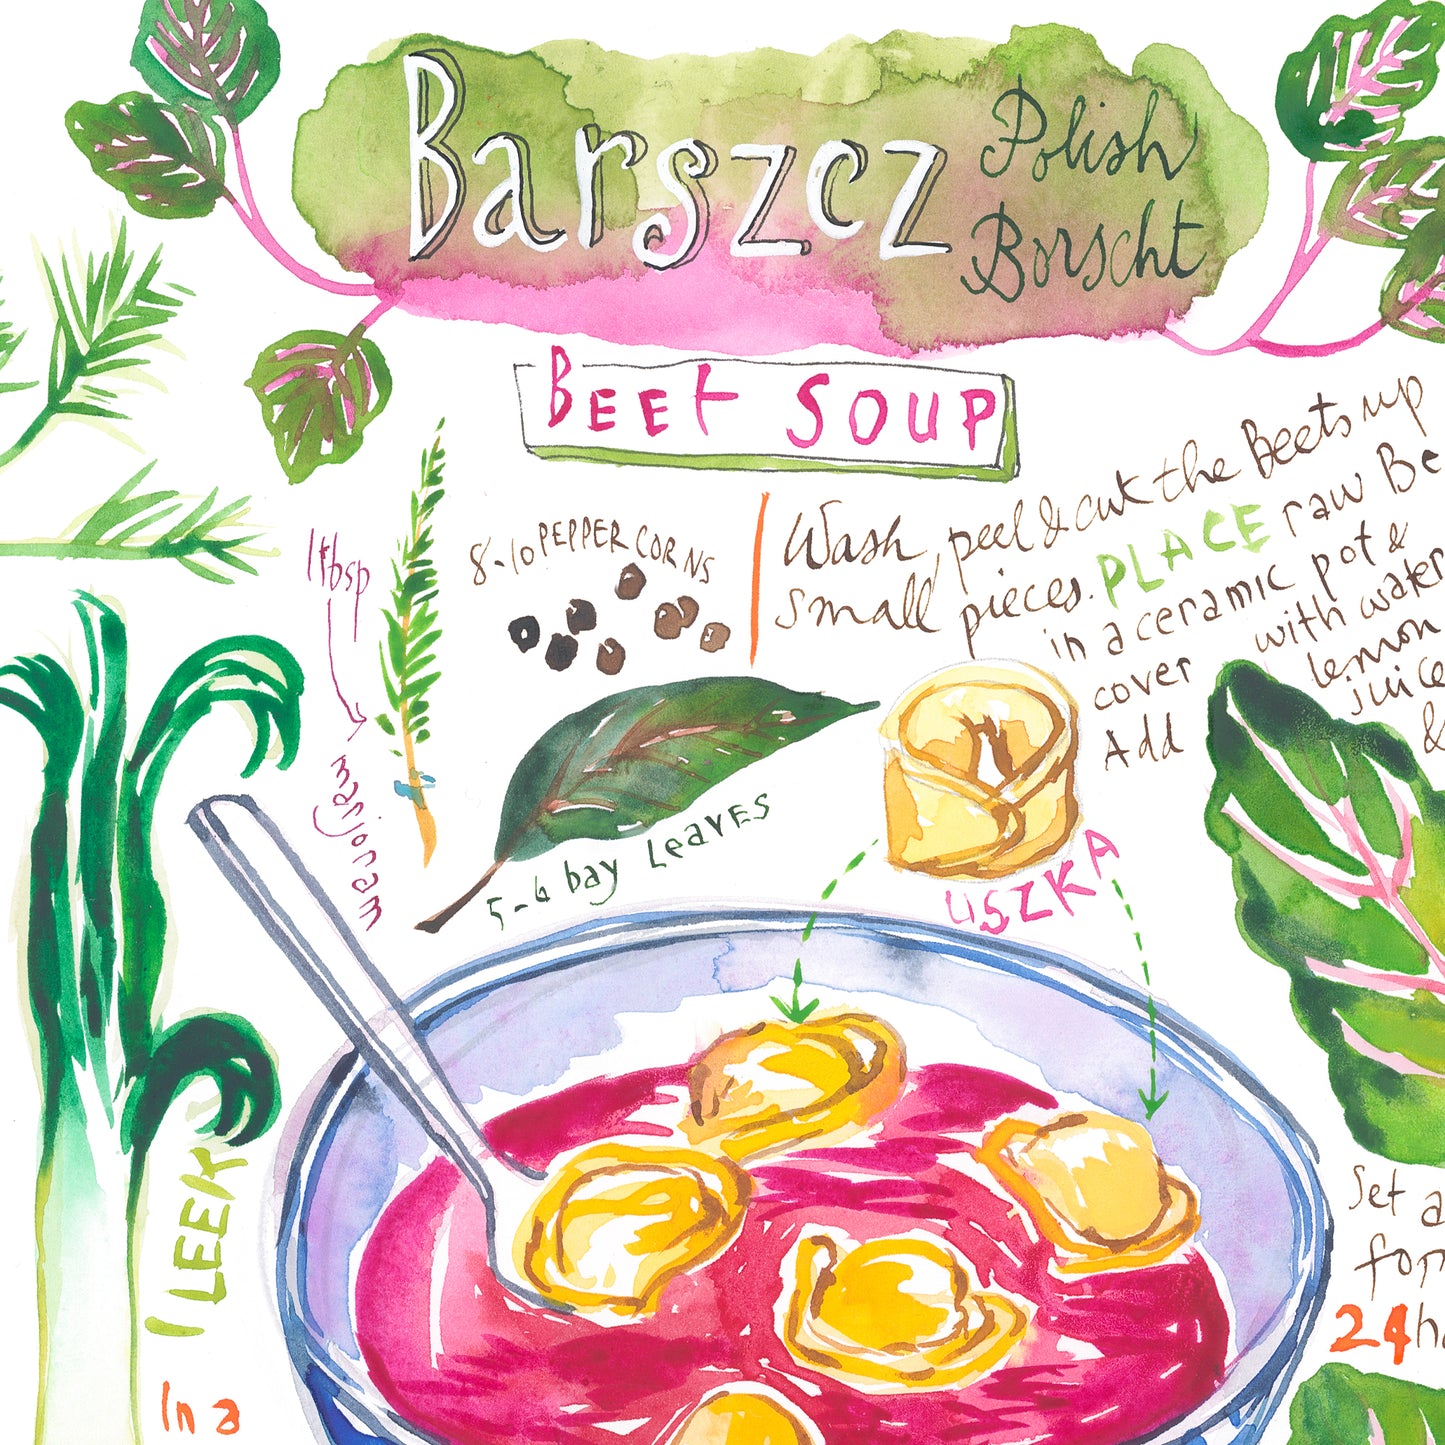 Barszcz
Polish
Borscht
BEET SOUP
1 tbsp
marjoram
8-10 PEPPER CORNS
5-6 bay Leaves
Wash, peel & cut the Beets up
small pieces. PLACE raw Be
in a ceramic pot &
cover with water
Add Lemon
juice
&
USZKA
1 LEEK
Set a
for
24h
In a